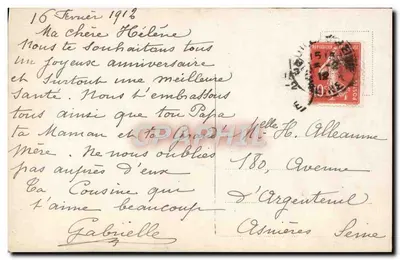 16 Fevrier 1912
Ma chère Hélène
Nous te souhaitons tous
un joyeux anniversaire
et surtout une meilleure
santé. Nous t'embrassons
tous ainsi que ton Papa
ta Maman et ta Grand
Mère. Ne nous oubliés
pas auprès d'eux
Ta Cousine qui
t'aime beaucoup
Gabrielle
Melle H. Alleaume
180, Avenue
d'Argenteuil
Asnières Seine